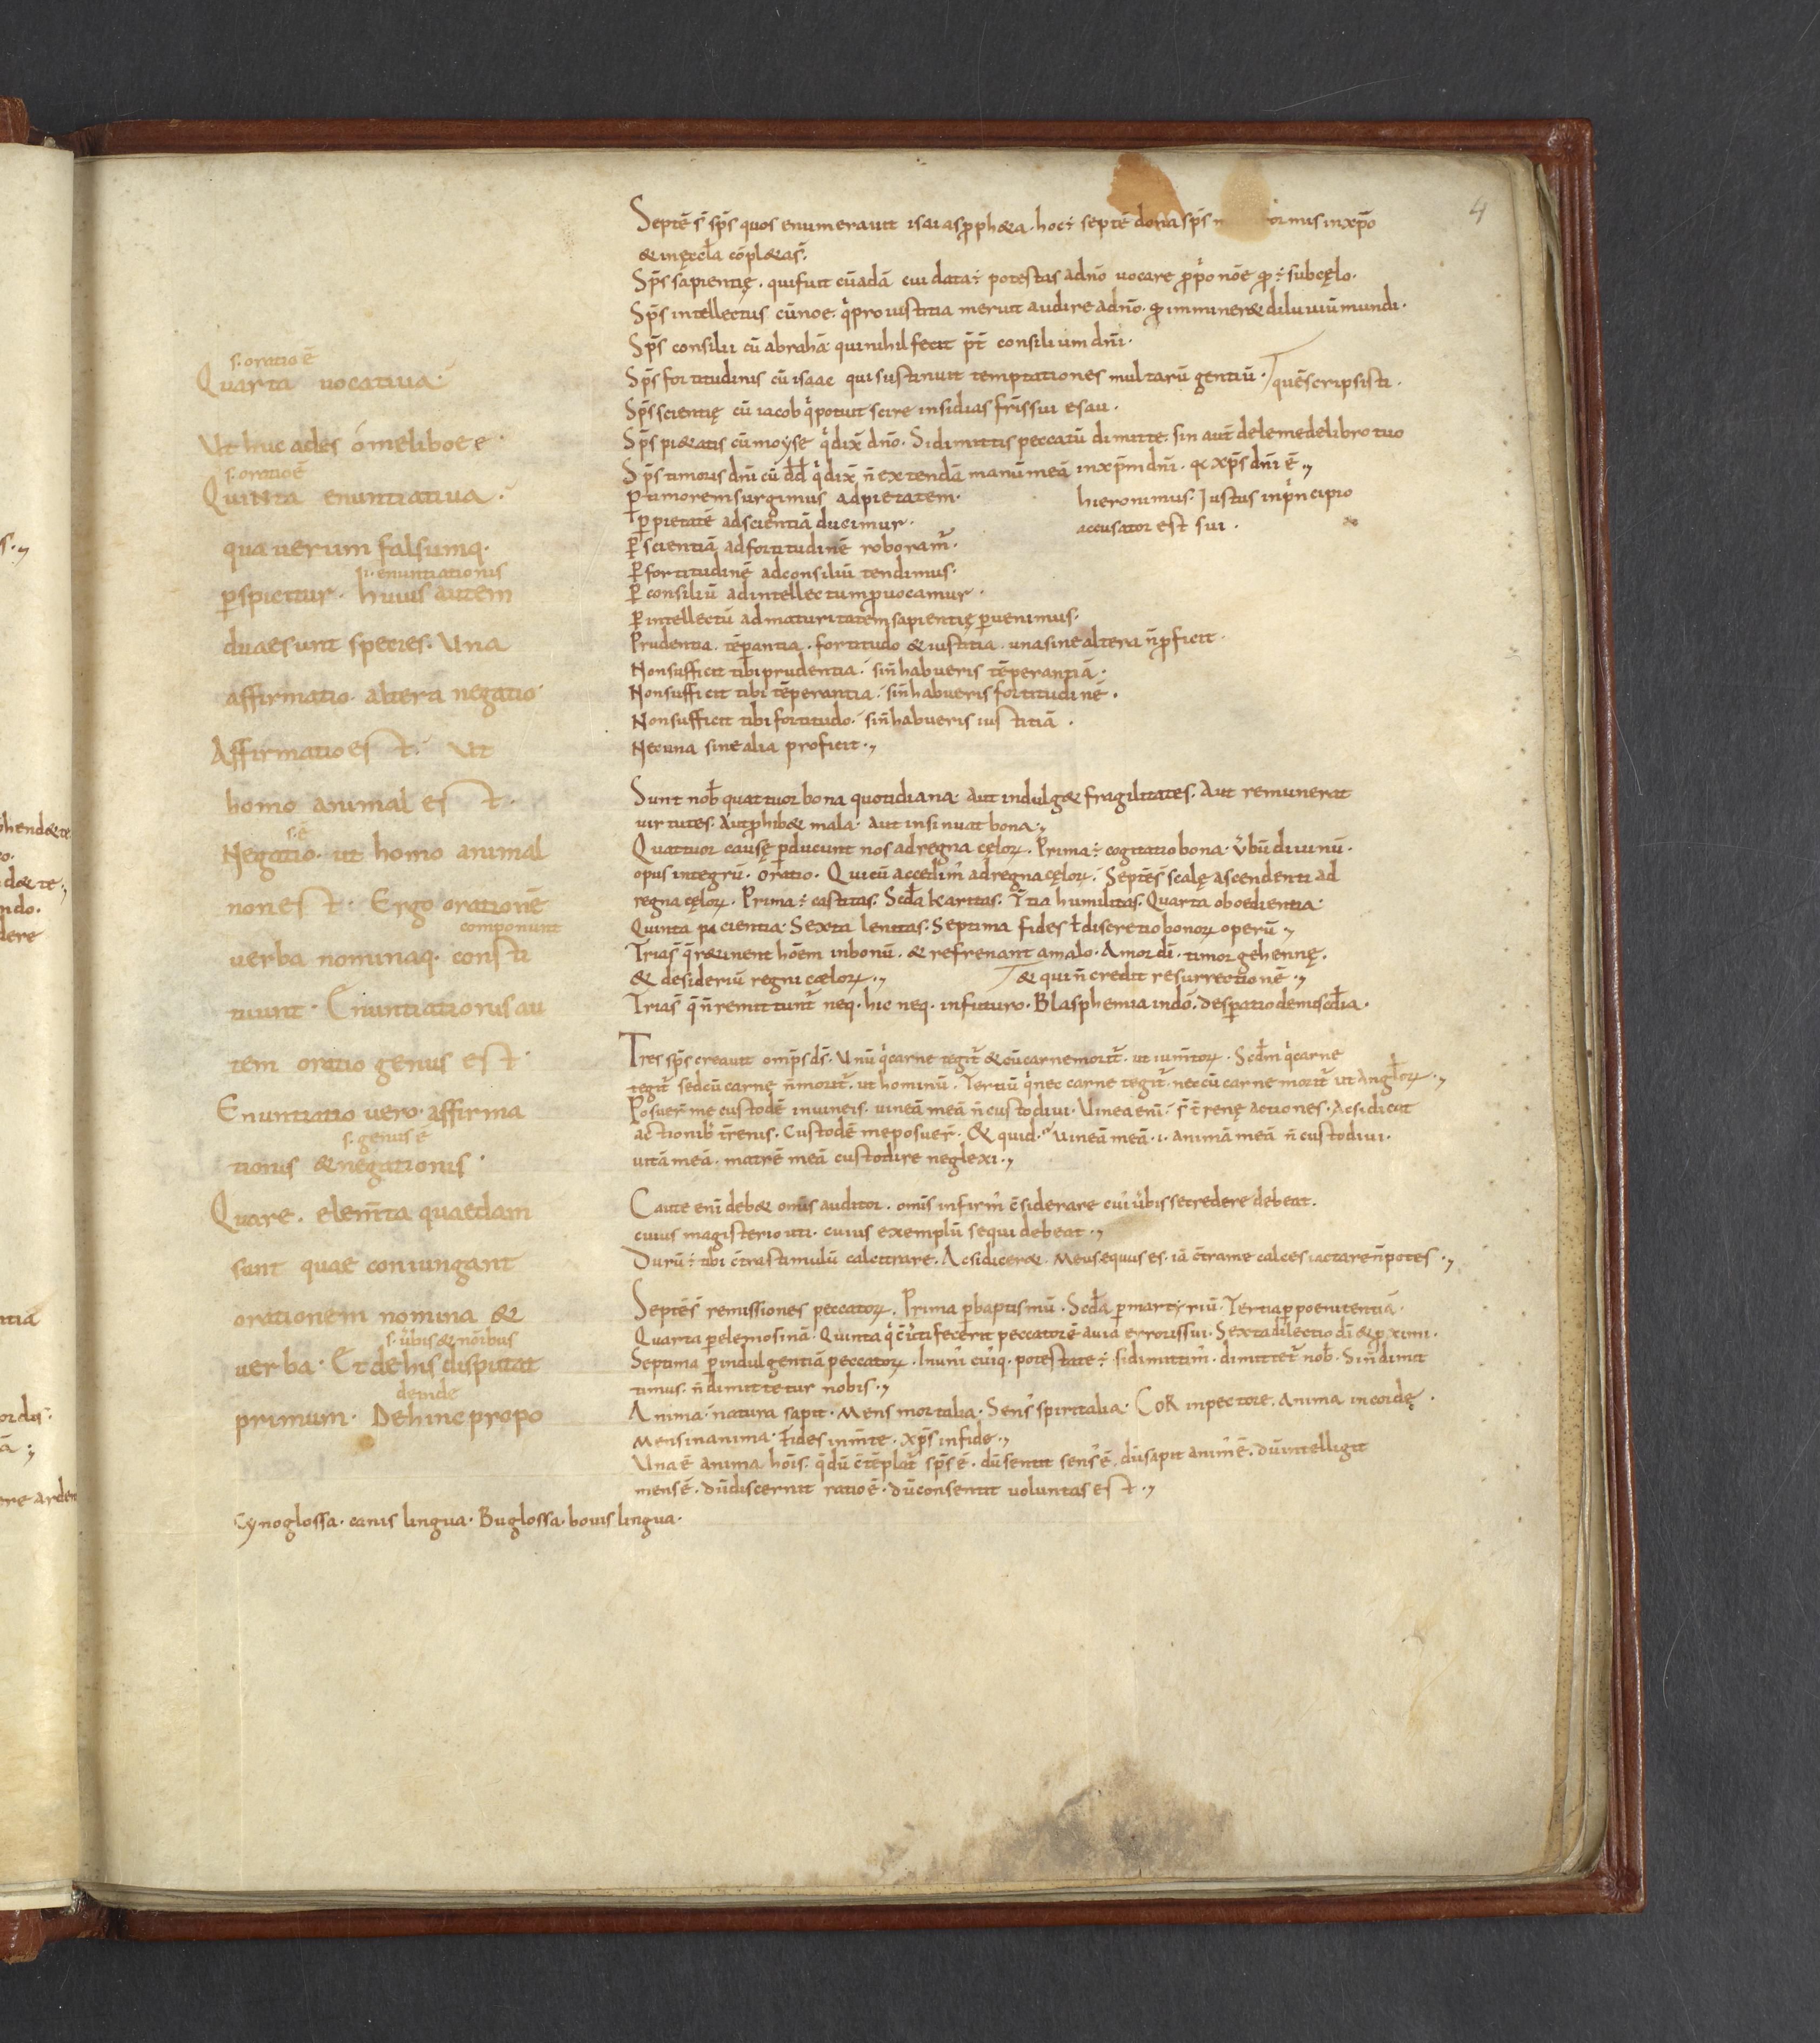 4
s. oratio ē
Quarta uocatiua·
Vt huc ades ó meliboee·
s. oratio ē
Quinta enuntiatiua·
qua uerum falsumq·
ꝑspicitur· huius autem
.i. enuntiationis
duae sunt species· Una
affirmatio· altera negatio·
Affirmatio est· Ut
homo animal est·
s. ē
Negatio· ut homo animal
non est· Ergo orationē
componunt
uerba nominaq· consti
tuunt· Enuntiationis au
tem oratio genus est·
Enuntiatio uero· affirma
s. genus ē
tionis & negationis·
Quare· elem̄ta quaedam
sunt quae coniungant
orationem nomina &
s. ūbis & nōibus
uerba· Et de his disputat
deinde
primum· Dehinc propo
Cynoglossa· canis lingua· Buglossa· bouis lingua·
Septē s̄ sp̄s quos enumerauit isaias ꝓph&a· hoc ÷ septē dona sp̄s in xp̄o
& in ęccła cōpl&a s̄·
Sp̄s sapientię· qui fuit cū adā cui data ÷ potestas a dn̄o uocare ꝓpͦo nōe qͩ ÷ sub cęlo·
Sp̄s intellectus cū noe· qͥ pro iustitia meruit audire a dn̄o· qͩ imminer& diluuiū mundi·
Sp̄s consilii cū abrahā qui nihil fecit p̄t consilium dn̄i·
Sp̄s fortitudinis cū isaac qui sustinuit temptationes multarū gentiū· quē scripsisti·
Sp̄s scientię cū iacob qͥ potuit scire insidias fr̄is sui esau·
Sp̄s pi&atis cū moyse qͥ dix̄ dn̄o· Si dimittis peccatū dimitte· sin aut̄ dele me de libro tuo
Sp̄s timoris dn̄i cū dd̄ qͥ dix̄ n̄ extendā manū meā in xp̄m dn̄i· qa xp̄s dn̄i ē·,
ꝑ timorem surgimus ad pietatem·
hieronimus· Iustus in pͥncipio
accusator est sui·
ꝑ pietatē ad scientiā ducimur·
ꝑ scientiā ad fortitudinē roboram̄·
ꝑ fortitudinē ad consiliū tendimus·
ꝑ consiliū ad intellectum ꝓuocamur·
ꝑ intellectū ad maturitatem sapientię ꝑuenimus·
Prudentia· tēꝑantia· fortitudo & iustitia· una sine altera n̄ ꝓficit·
Non sufficit tibi prudentia· si n̄ habueris tēperantiā·
Non sufficit tibi tēperantia· si n̄ habueris fortitudinē·
Non sufficit tibi fortitudo· si n̄ habueris iustitiā·
Nec una sine alia proficit·,
Sunt nob̄ quattuor bona quotidiana· Aut indulg& fragilitates· Aut remunerat
uirtutes· Aut ꝓhib& mala· Aut insinuat bona·,
Quattuor causę ꝑducunt nos ad regna cęloꝝ· Prima ÷ cogitatio bona· ūbū diuinū·
opus integrū· oratio· Qui cū accedim̄ ad regna cęloꝝ· Septē s̄ scalę ascendenti ad
regna cęloꝝ· Prima ÷ castitas· Scd̄a karitas· T̄tia humilitas· Quarta oboedientia·
Quinta pacientia· Sexta lenitas· Septima fides ł discretio bonoꝝ operū·,
Tria s̄ q̄ r&inent hōem in bonū· & refrenant a malo· Amor dī· timor gehennę·
& desideriū regni cæloꝝ·, & qui n̄ credit resurrectionē·,
Tria s̄ q̄ n̄ remittunt̄ neq· hic neq· in futuro· Blasphemia in dō· desꝑatio de miscd̄ia·
Tres sp̄s creauit omp̄s ds̄· Unū qͥ carne tegit̄ & cū carne morit̄· ut ium̄toꝝ· Scd̄m qͥ carne
tegit̄ sed cū carne n̄ morit̄· ut hominū· Tertiū qͥ nec carne tegit̄· nec cū carne morit̄ ut angloꝝ·,
Posuer̄ me custodē in uineis· uineā meā n̄ custodiui· Uinea enī s̄ t̄renę actiones· Ac si dicat
actionib; t̄renis· custodē me posuer̄· & quid· Uineā meā· i· animā meā n̄ custodiui·
uitā meā· matrē meā custodire neglexi·,
Caute enī deb& omīs auditor· omīs infirm̄ c̄siderare cui' ūbis se credere debeat·
cuius magisterio uti· cuius exemplū sequi debeat·,
Durū ÷ tibi c̄tra stimulū calcitrare· Ac si dicer&· Meus equus es· iā c̄tra me calces iactare n̄ potes·,
Septē s̄ remissiones peccatoꝝ· Prima ꝑ baptismū· Scd̄a ꝑ martyriū· Tertia ꝑ poenitentiā·
Quarta ꝑ elemosinā· Quinta qͥ c̄uti fecerit peccatorē a uia erroris sui· Sexta dilectio dī & ꝓximi·
Septima ꝑ indulgentiā peccatoꝝ· In uni' cui'q· potestate ÷ si dimittim̄· dimittet̄ nob̄· Si n̄ dimit
timus· n̄ dimittetur nobis·,
Anima· natura sapit· Mens mortalia· Sens' spiritalia· Cor in pectore· Anima in cordę·
Mens in anima· Fides in m̄te· xp̄s in fide·,
Una ē anima hōis· q̄ dū c̄tēplat̄ sp̄s ē· dū sentit sens' ē· dū sapit anim' ē· dū intelligit
mens ē· dū discernit ratio ē· dū consentit uoluntas est·,